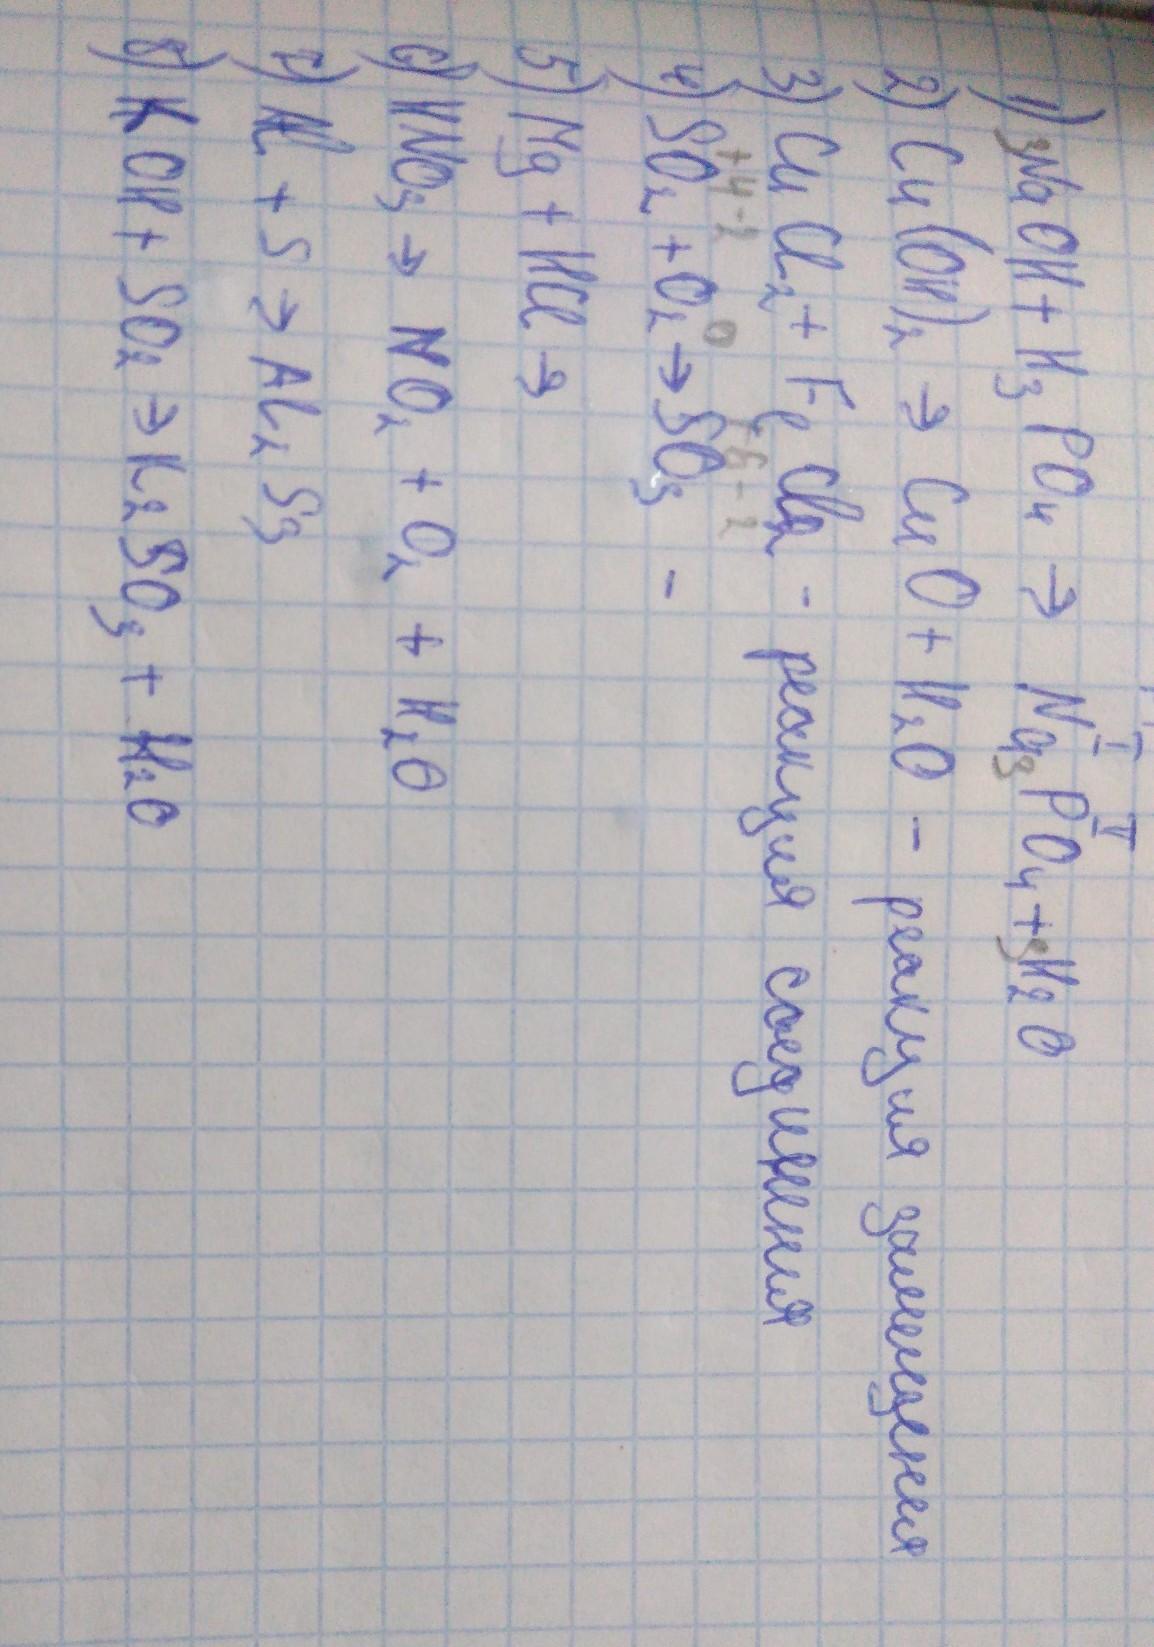 1) 3NaOH + H₃PO₄ → Na₃PO₄ + 3H₂O
2) Cu(OH)₂ → CuO + H₂O - реакция замещения
3) CuCl₂ + FeCl₂ - реакция соединения
+4 -2 0 +6 -2
4) SO₂ + O₂ → SO₃ -
5) Mg + HCl →
6) HNO₃ → NO₂ + O₂ + H₂O
7) Al + S → Al₂S₃
8) KOH + SO₂ → K₂SO₃ + H₂O